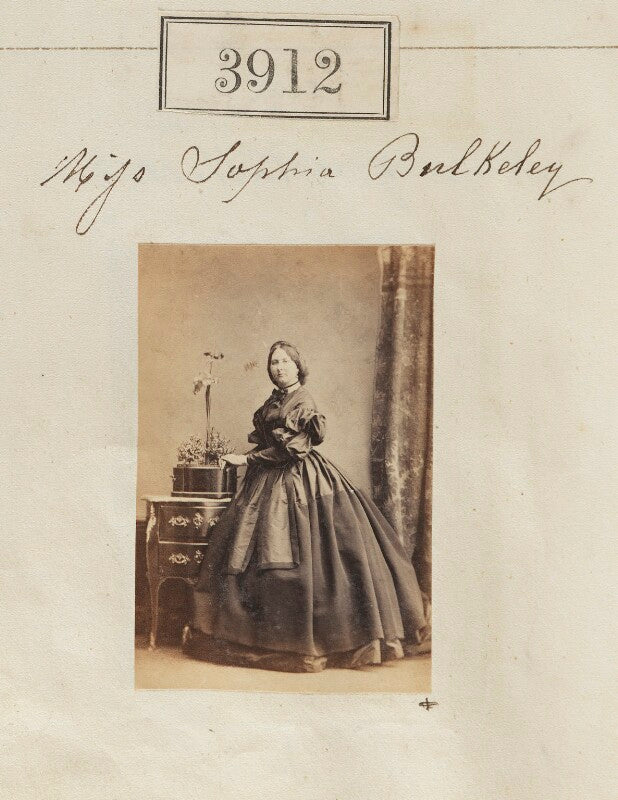 3912
Miss Sophia Bulkeley